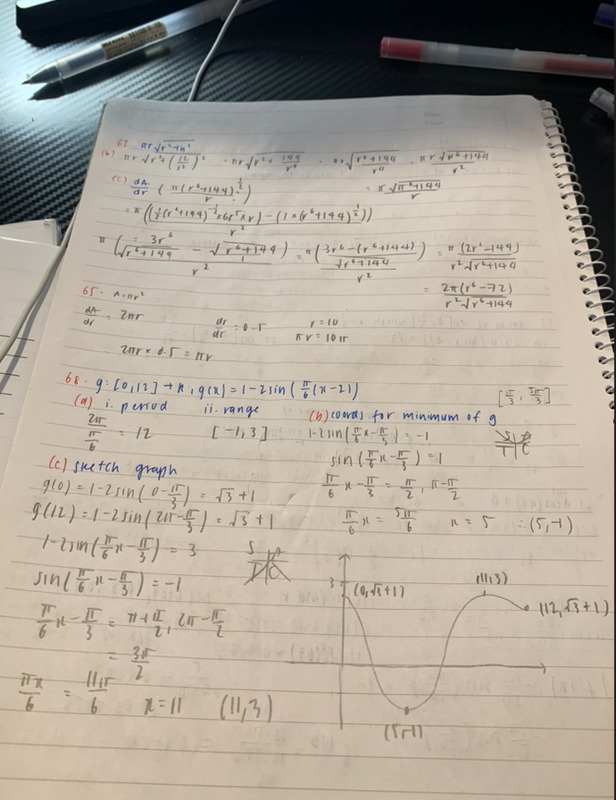 62. πr√(r²+h²)
(b) πr√(r²+(12/r²)²) = πr√(r²+144/r⁴) = πr√((r⁶+144)/r⁴) = πr√(r⁶+144)/r²
= π√(r⁶+144)/r
(c) dA/dr (π(r⁶+144)^½/r)
= π((½(r⁶+144)^-½ × 6r⁵ × r) - (1×(r⁶+144)^½))/r²
π(3r⁶/√(r⁶+144) - √(r⁶+144)/1)/r² = π((3r⁶-(r⁶+144))/√(r⁶+144))/r² = π(2r⁶-144)/r²√(r⁶+144)
= 2π(r⁶-72)/r²√(r⁶+144)
65. A=πr²
dA/dr = 2πr dr/dt = 0.5 r=10
πr = 10π
2πr × 0.5 = πr
68. g: [0,12] → R, g(x) = 1-2sin(π/6(x-2)) [π/3, 5π/3]
(a) i. period ii. range (b) coords for minimum of g
2π/(π/6) = 12 [-1,3] 1-2sin(π/6x-π/3) = -1
S A T C
sin(π/6x-π/3) = 1
(c) sketch graph π/6x-π/3 = π/2, π-π/2
g(0) = 1-2sin(0-π/3) = √3+1
π/6x = 5π/6 x=5 ∴(5,-1)
g(12) = 1-2sin(2π-π/3) = √3+1
1-2sin(π/6x-π/3) = 3 S A T C
sin(π/6x-π/3) = -1
π/6x-π/3 = π+π/2, 2π-π/2
= 3π/2
πx/6 = 11π/6 x=11 (11,3)
3
(0,√3+1)
(11,3)
(12,√3+1)
(5,-1)